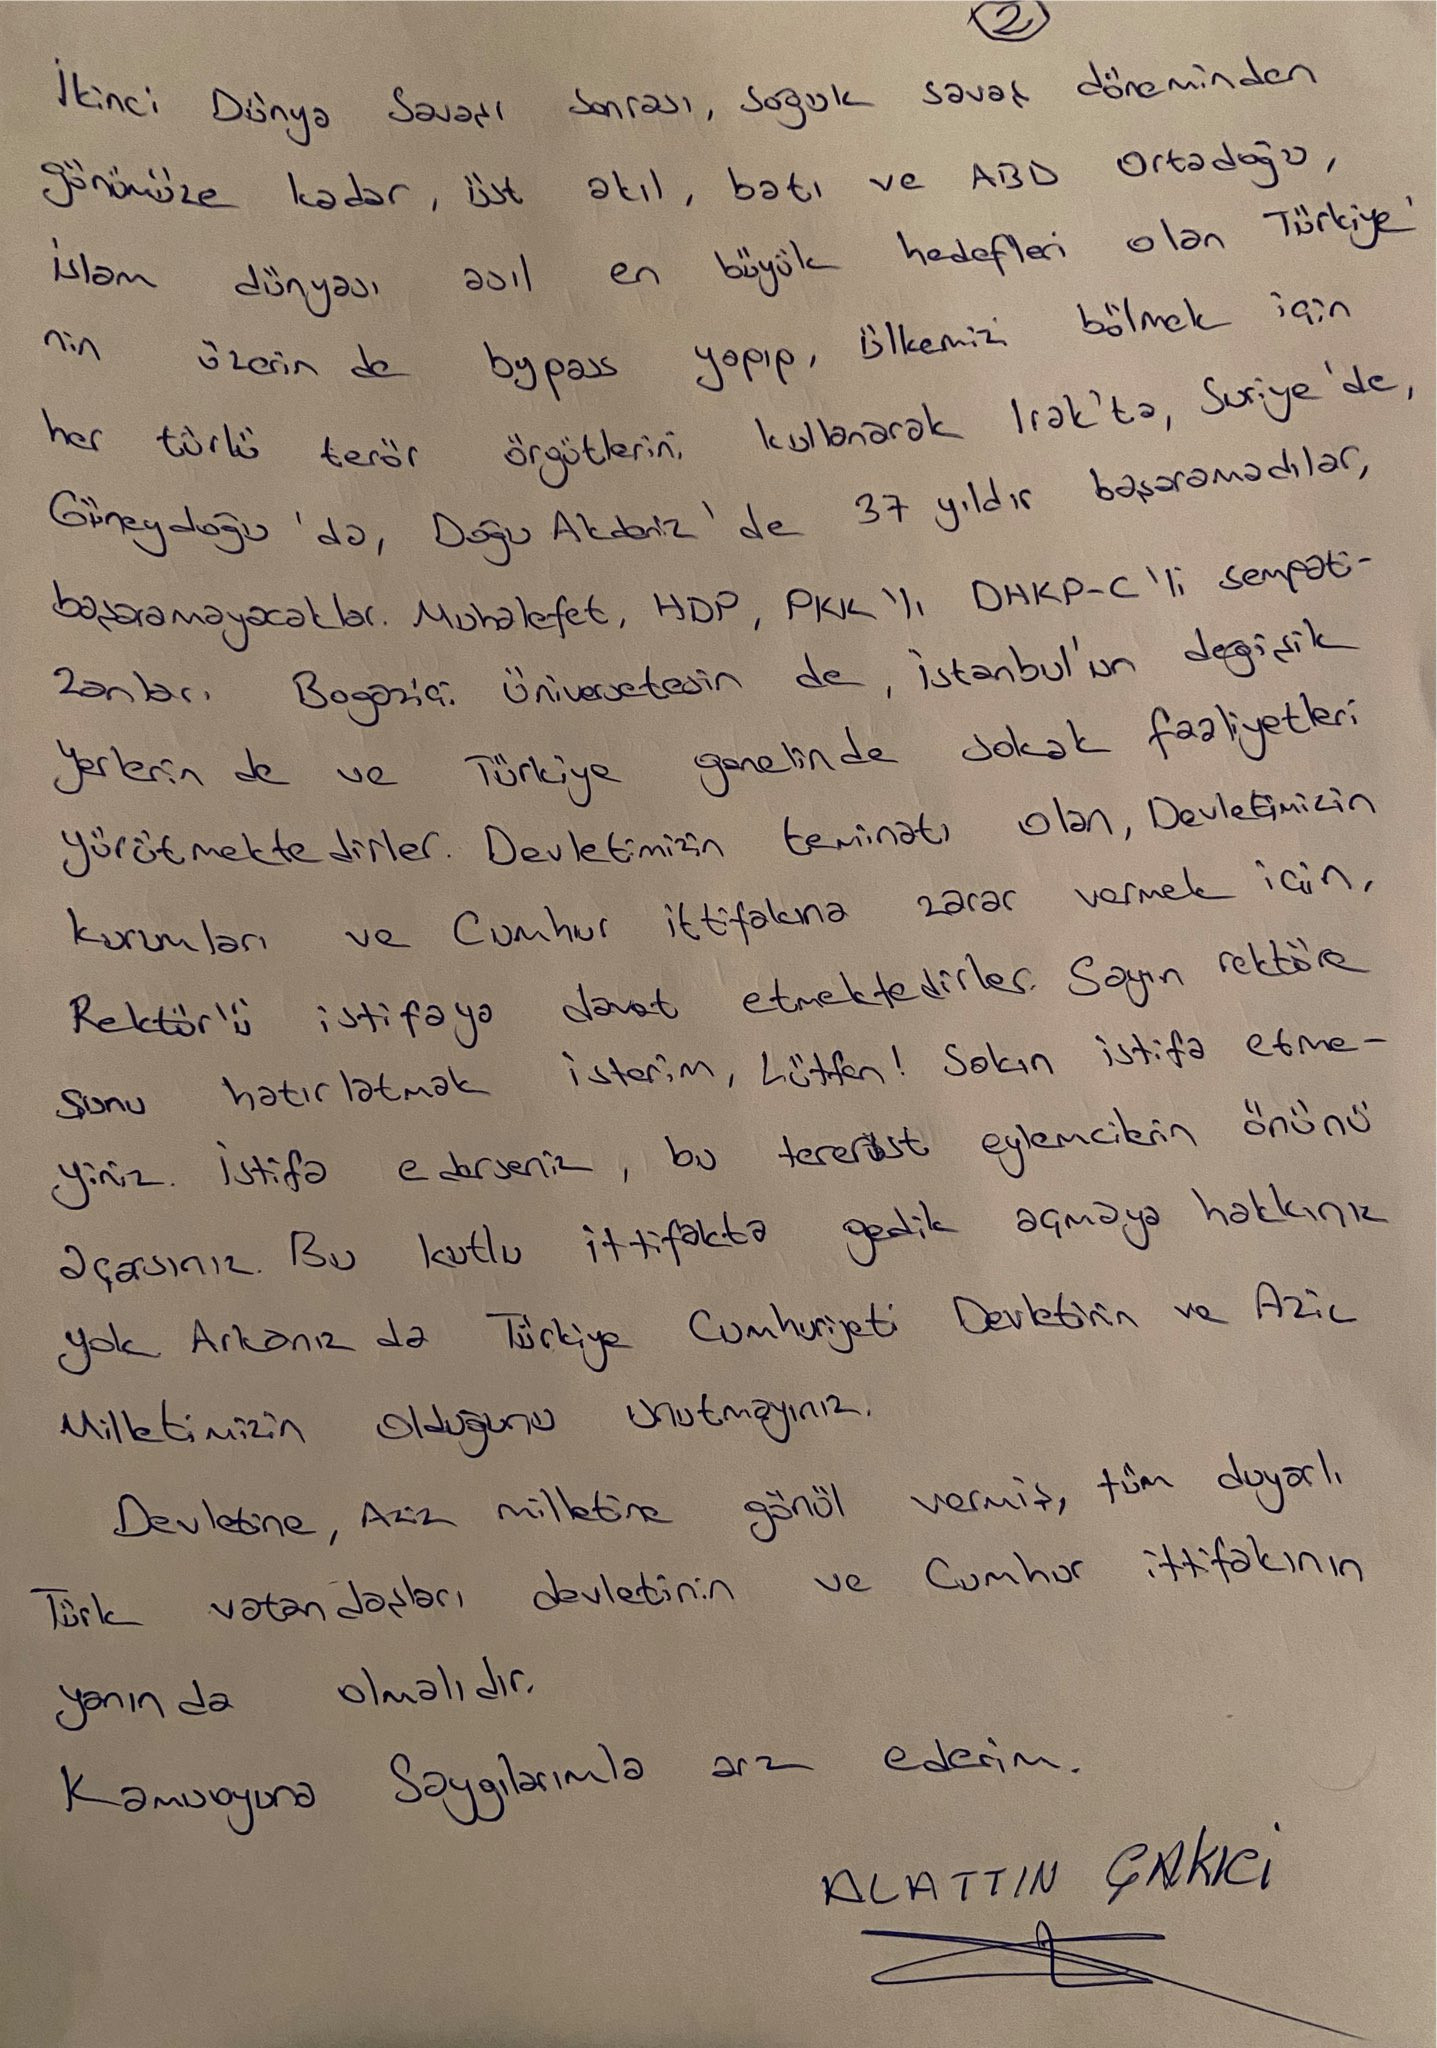 2
İkinci Dünya Savaşı sonrası, soğuk savaş döneminden
günümüze kadar, üst akıl, batı ve ABD Ortadoğu,
İslam dünyası asıl en büyük hedefleri olan Türkiye'
nin üzerin de bypass yapıp, ülkemizi bölmek için
her türlü terör örgütlerini kullanarak Irak'ta, Suriye'de,
Güneydoğu'da, Doğu Akdeniz'de 37 yıldır başaramadılar,
başaramayacaklar. Muhalefet, HDP, PKK'lı DHKP-C'li sempati-
zanları Bogaziçi üniversetesin de, İstanbul'un degişik
yerlerin de ve Türkiye genelinde sokak faaliyetleri
yürütmektedirler. Devletimizin teminatı olan, Devletimizin
kurumları ve Cumhur ittifakına zarar vermek için,
Rektör'ü istifaya davet etmektedirler. Sayın rektöre
şunu hatırlatmak isterim, Lütfen! Sakın istifa etme-
yiniz. İstifa ederseniz, bu tererist eylemcilerin önünü
açarsınız. Bu kutlu ittifakta gedik açmaya hakkınız
yok Arkanız da Türkiye Cumhuriyeti Devletinin ve Aziz
Milletimizin olduğunu unutmayınız.
Devletine, Aziz milletine gönül vermiş, tüm duyarlı
Türk vatandaşları devletinin ve Cumhur ittifakının
yanın da olmalıdır.
Kamuoyuna Saygılarımla arz ederim.
ALATTIN ÇAKICI